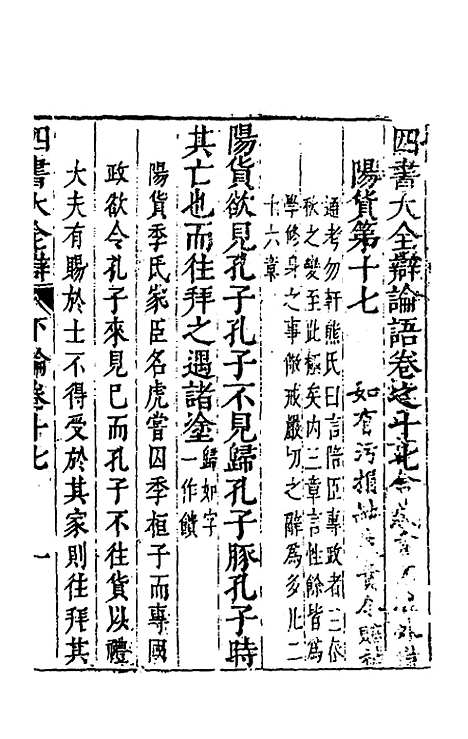 四書大全辯論語卷之十七
陽貨第十七
通考勿軒熊氏曰言陪臣專政者三春
秋之變至此極矣內三章言性餘皆為
學修身之事儆戒嚴切之辭為多凡二
十六章
陽貨欲見孔子孔子不見歸孔子豚孔子時
其亡也而往拜之遇諸塗歸如字一作饋
陽貨季氏家臣名虎嘗囚季桓子而專國
政欲令孔子來見已而孔子不往貨以禮
大夫有賜於士不得受於其家則往拜其
四書大全辯 下論卷十七 一